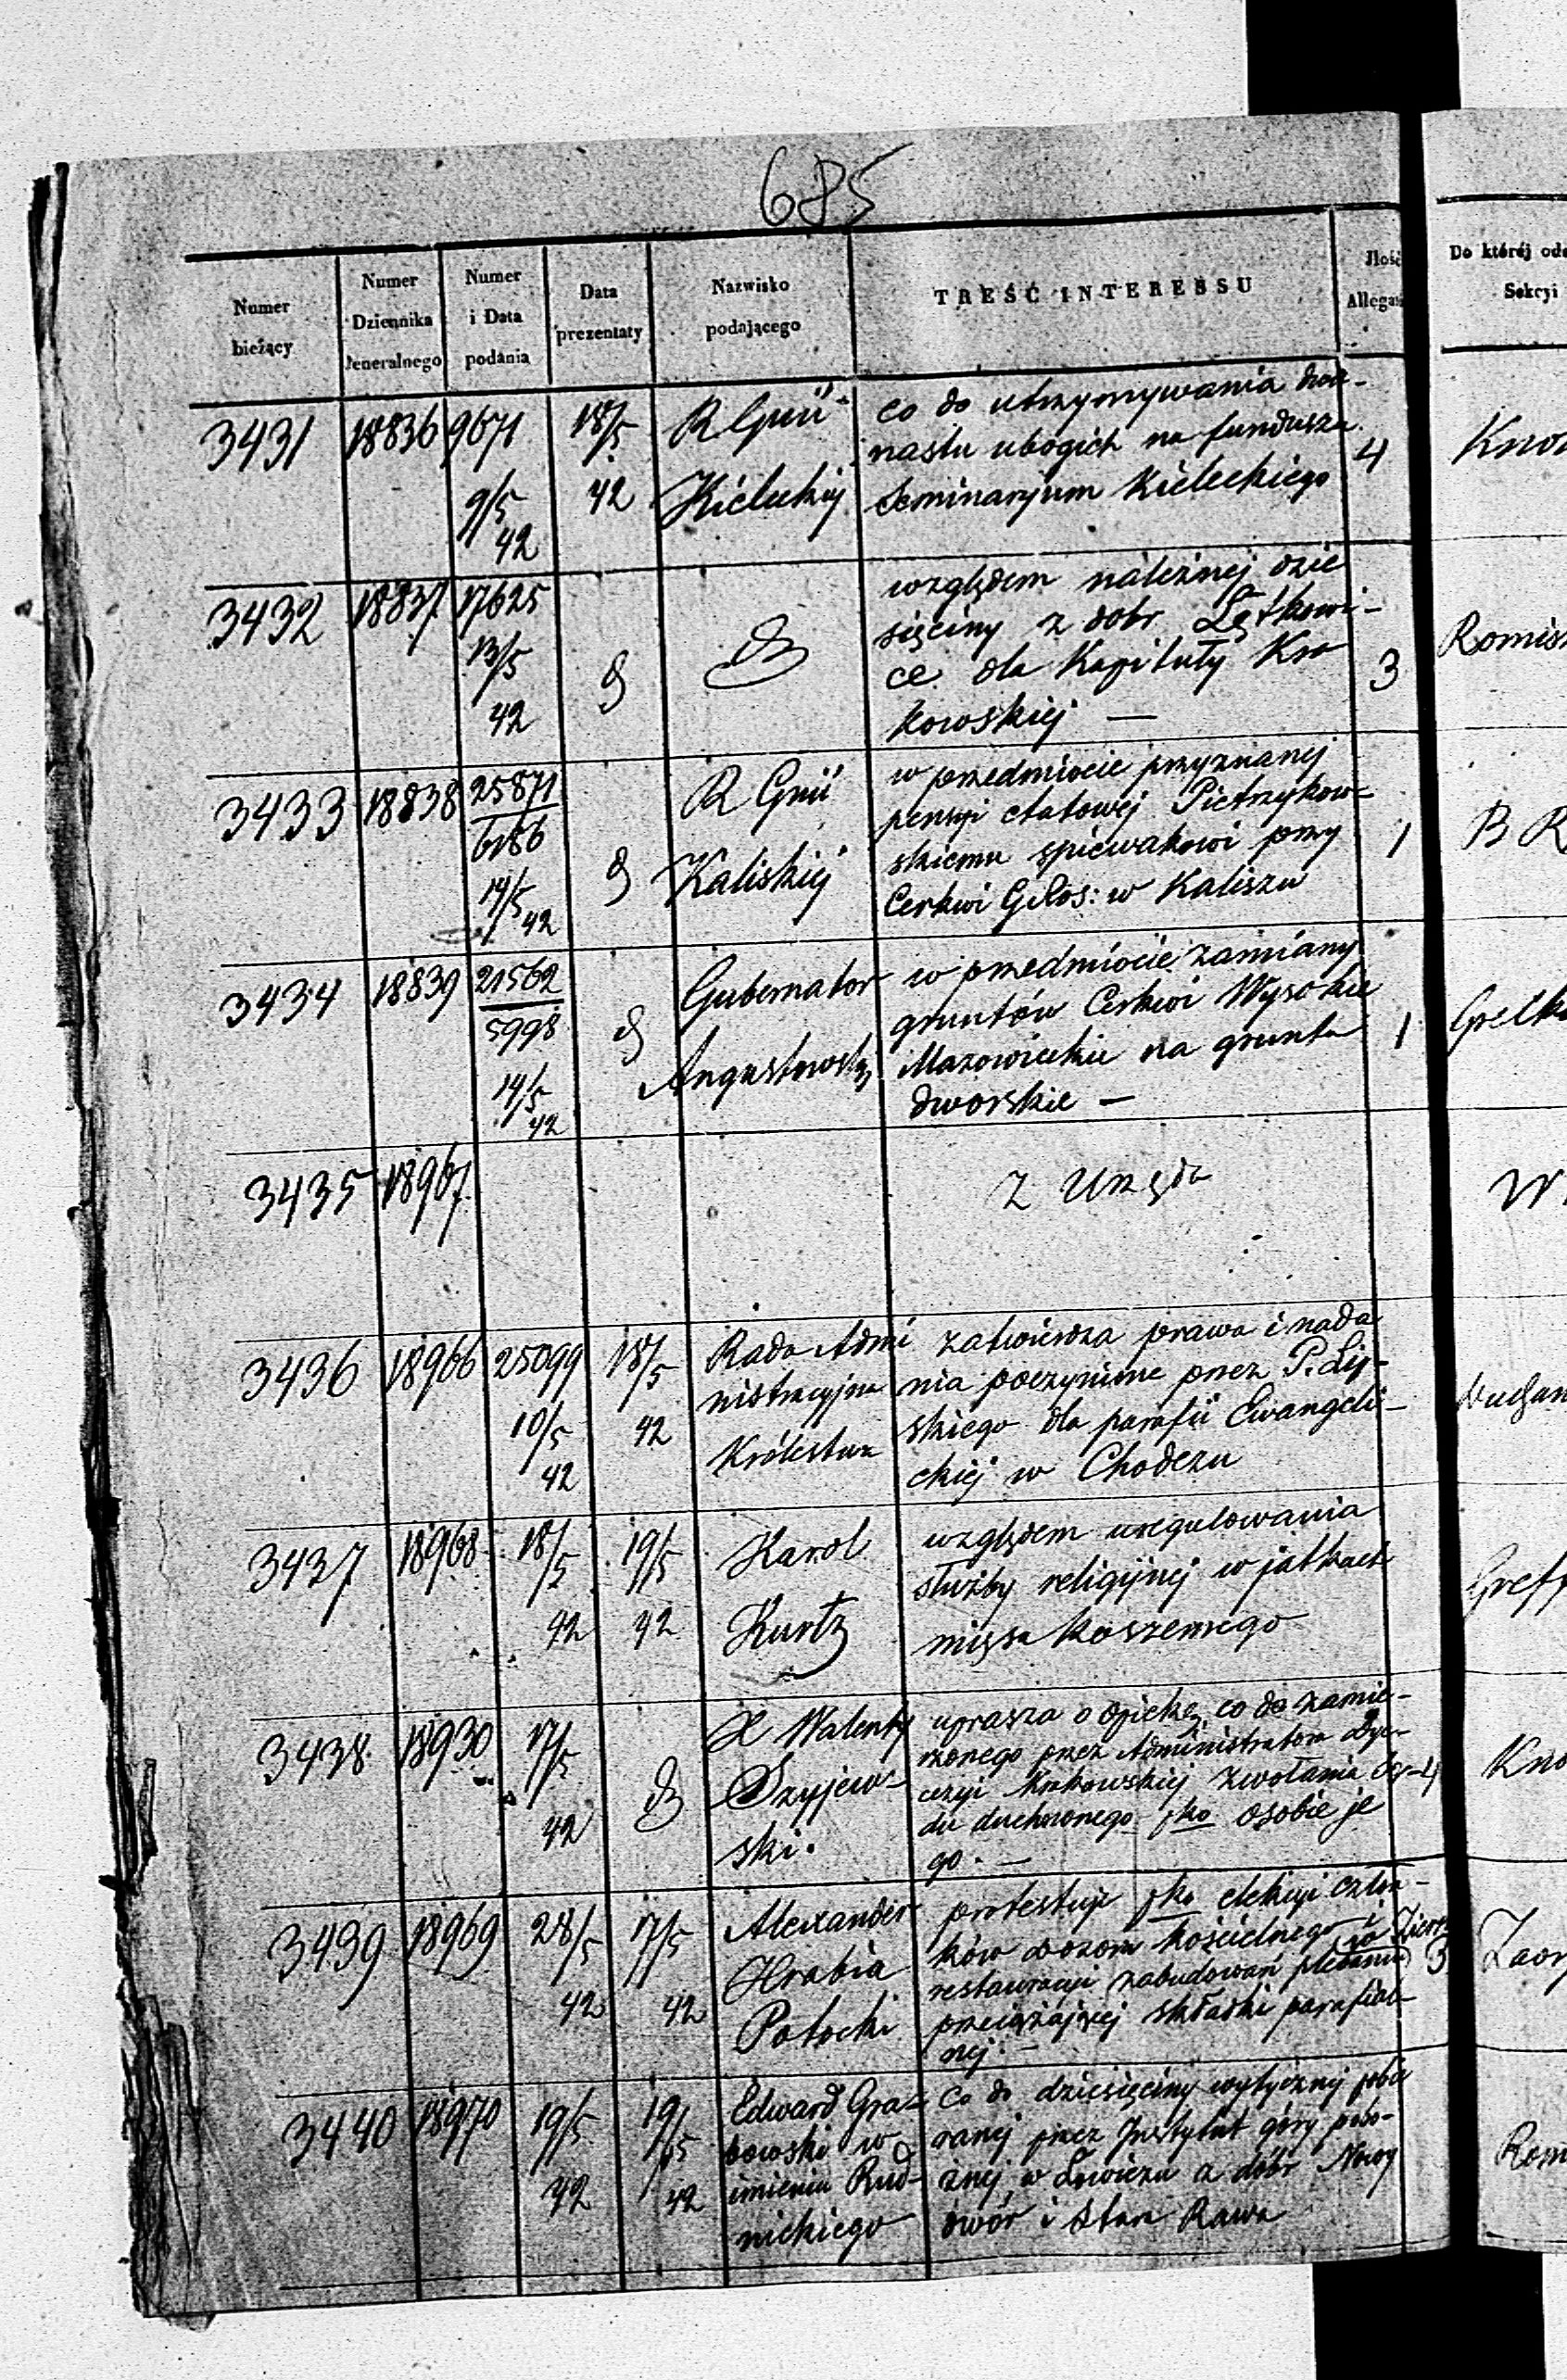 685
Numer bieżący
Numer Dziennika Jeneralnego
Numer i Data podania
Data prezentaty
Nazwisko podającego
TREŚĆ INTERESSU
Ilość
Do któréj
Sekcyi
3431 18836 9671 9/5 42 18/5 42
R Gnii
Kieleckiéj
co do utrzymywania dwu-
nastu ubogich na funduszu
Seminaryum Kieleckiego
4
3432 18837 17625 13/5 42
względem należnej dzie
sięciny z dobr Łętkowi-
ce dla Kapituły Kra
kowskiej —
3
3433 18838 25871 6186 14/5 42
R Gnii
Kaliskiej
w przedmiocie przyznanej
pensyi etatowej Pietrzykow-
skiemu spiewakowi przy
Cerkwi G Ros: w Kaliszu
1
B R
3434 18839 21562 5998 14/5 42
Gubernator
Augustowski
w przedmiocie zamiany
gruntów Cerkwi Wysokie
Mazowieckie na grunta
dworskie —
1
3435 18967
Z Urzędu
3436 18966 25099 10/5 42 18/5 42
Rada Admi
nistracyjna
Królestwa
zatwierdza prawa i nada
nia poczynione przez P. Lip-
skiego dla parafii Ewangeli-
ckiej w Chodczu
3437 18968 18/5 42 19/5 42
Karol
Kurtz
względem uregulowania
służby religijnej w jatkach
mięsa koszernego
3438 18930 17/5 42
X Walenty
Szyjew-
ski.
uprasza o opiekę co do zamie-
rzonego przez Administratora Dye-
cezyi Krakowskiej zwołania Są-
du duchownego pko osobie je
go. —
4
3439 18969 28/5 42 17/5 42
Alexander
Hrabia
Potocki
protestuje pko elekcyi człon-
ków dozoru kościelnego w
restauracyi zabudowań plebanii
przeciążającej składki parafial-
nej. —
3
3440 18970 19/5 42 19/5 42
Edward Gra-
bowski w
imieniu Rud-
nickiego
co do dziesięciny wytycznej pobie
ranej przez Instytut góry pobo-
żnej w Łowiczu z dóbr Nowy
dwór i Stara Rawa